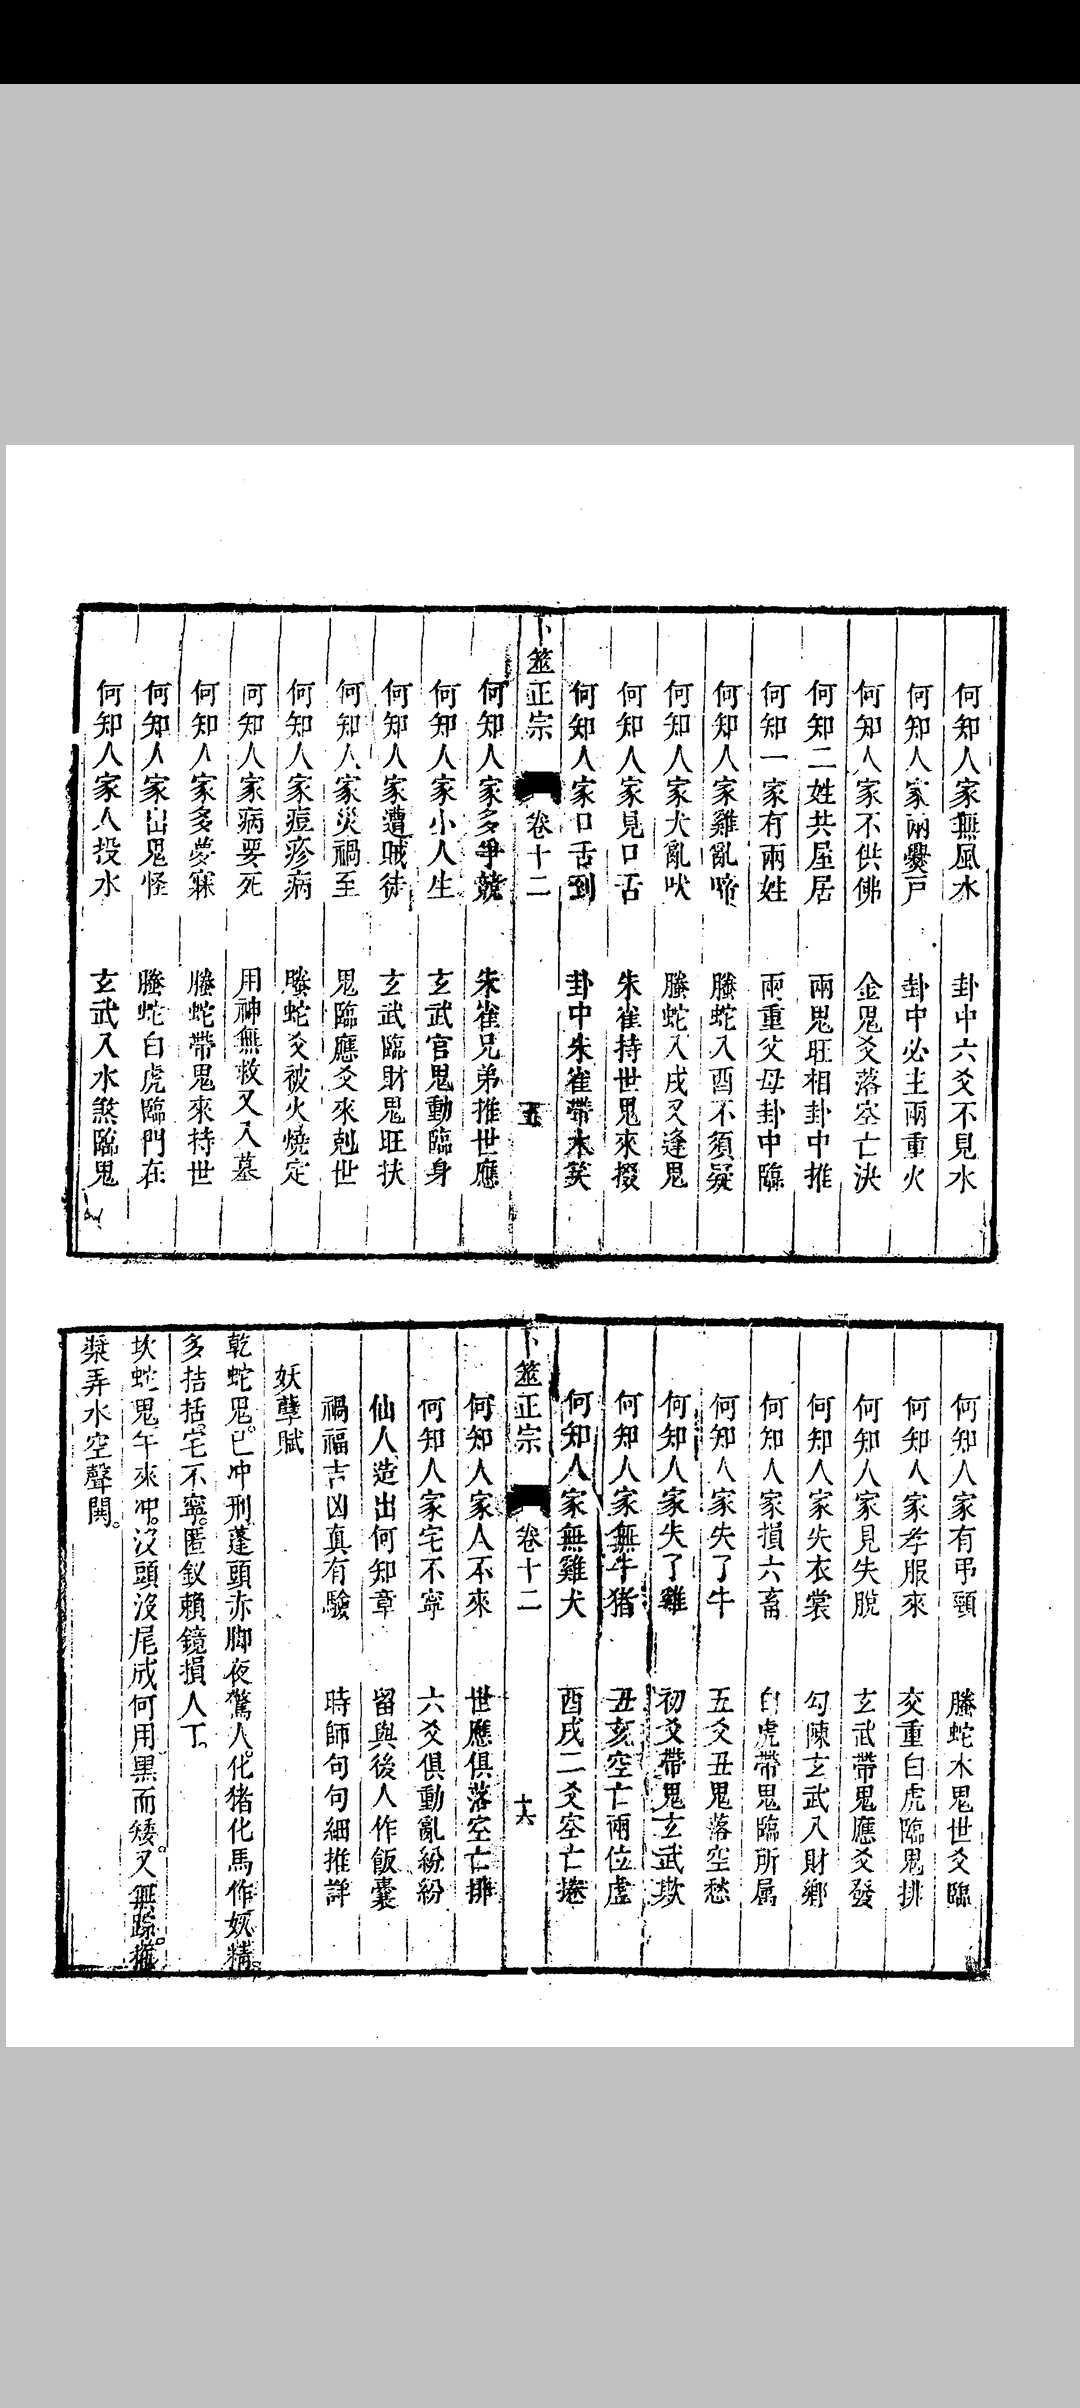 何知人家無風水　卦中六爻不見水
何知人家兩爨戸　卦中必主兩重火
何知人家不供佛　金鬼爻落空亡決
何知二姓共屋居　兩鬼旺相卦中推
何知一家有兩姓　兩重父母卦中臨
何知人家雞亂啼　螣蛇入酉不須疑
何知人家犬亂吠　螣蛇入戌又逢鬼
何知人家見口舌　朱雀持世鬼來掇
何知人家口舌到　卦中朱雀帶木笑
卜筮正宗　卷十二　五
何知人家多爭競　朱雀兄弟推世應
何知人家小人生　玄武官鬼動臨身
何知人家遭賊徒　玄武臨財鬼旺扶
何知人家災禍至　鬼臨應爻來剋世
何知人家痘疹病　螣蛇爻被火燒定
何知人家病要死　用神無救又入墓
何知人家多夢寐　螣蛇帶鬼來持世
何知人家出鬼怪　螣蛇白虎臨門在
何知人家人投水　玄武入水煞臨鬼
何知人家有弔頸　螣蛇木鬼世爻臨
何知人家孝服來　交重白虎臨鬼排
何知人家見失脫　玄武帶鬼應爻發
何知人家失衣裳　勾陳玄武入財鄉
何知人家損六畜　白虎帶鬼臨所属
何知人家失了牛　五爻丑鬼落空愁
何知人家失了雞　初爻帶鬼玄武欺
何知人家無牛猪　丑亥空亡兩位虛
何知人家無雞犬　酉戌二爻空亡捲
卜筮正宗　卷十二　十六
何知人家人不來　世應俱落空亡排
何知人家宅不寧　六爻俱動亂紛紛
仙人造出何知章　留與後人作飯囊
禍福吉凶真有驗　時師句句細推詳
妖孽賦
乾蛇鬼。巳冲刑。蓬頭赤脚夜驚人。化猪化馬作妖精。
多拮括。宅不寧。匿釵賴鏡損人丁。
坎蛇鬼午來冲。沒頭沒尾成何用黑而矮。又無踪。
槳弄水空聲開。